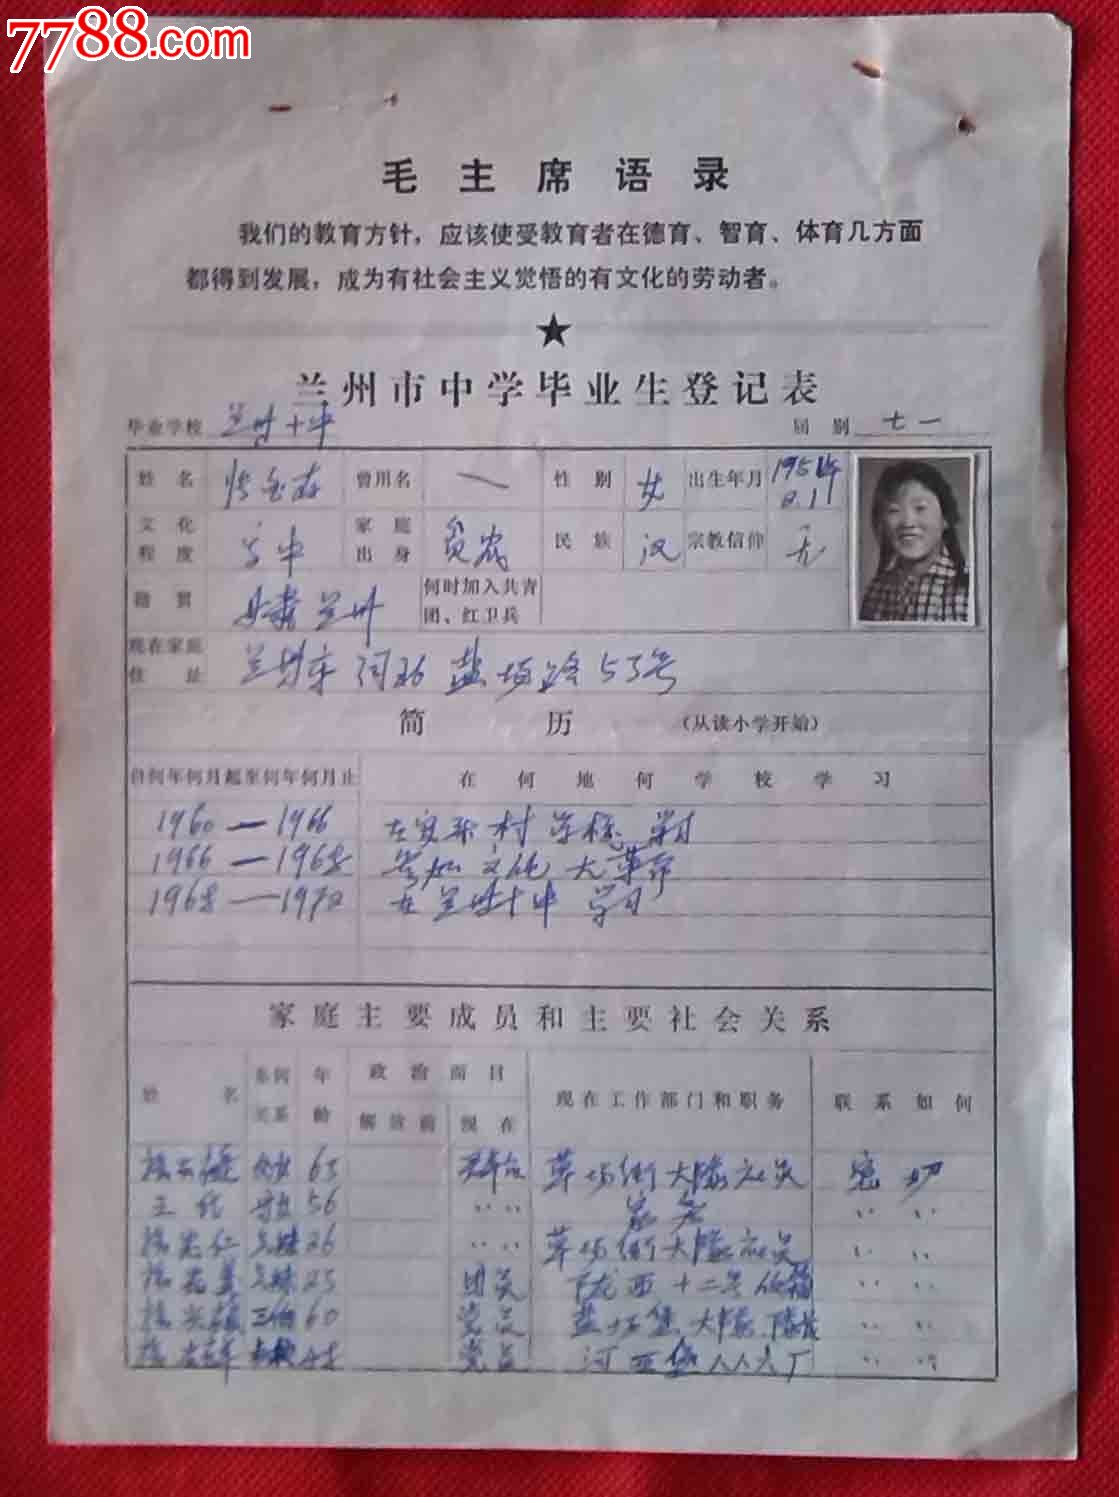 7788.com
毛主席语录
我们的教育方针，应该使受教育者在德育、智育、体育几方面
都得到发展，成为有社会主义觉悟的有文化的劳动者。
★
兰州市中学毕业生登记表
毕业学校 兰州十中 届别 七一
姓名 曾用名 一 性别 女 出生年月
文化程度 高中 家庭出身 贫农 民族 汉 宗教信仰 无
籍贯 甘肃兰州 何时加入共青团、红卫兵
现在家庭住址 兰州市河北盐场路53号
简历 （从读小学开始）
自何年何月起至何年何月止 在何地何学校学习
1960—1966 村学校学习
1966—1968 参加文化大革命
1968—1970 在兰州十中学习
家庭主要成员和主要社会关系
姓名 系何关系 年龄 政治面目 现在工作部门和职务 联系如何
解放前 现在
父女 63 群众 草场街大队社员 密切
王 母女 56 〃〃 家务 〃〃
26 〃〃 草场街大队社员 〃〃
25 团员 陇西十二号信箱 〃〃
60 党员 盐场堡大队队长 〃〃
党员 河西堡 厂 〃〃